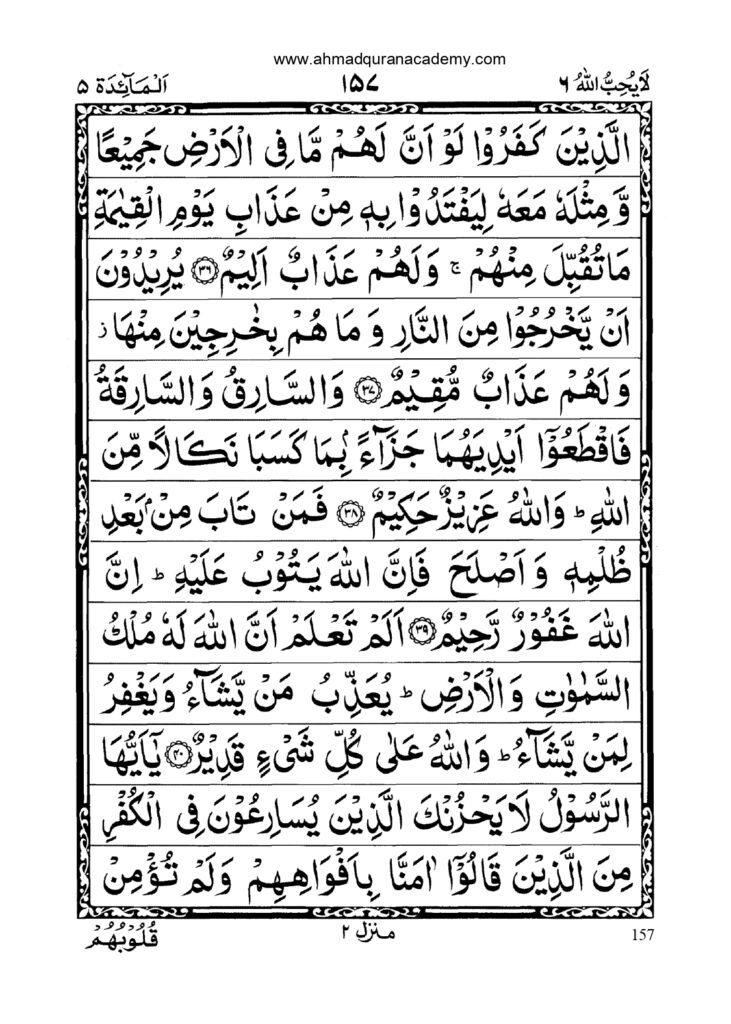 www.ahmadquranacademy.com
لَا يُحِبُّ اللهُ ٦ ١٥٧ اَلْمَآئِدَة ٥
الَّذِيْنَ كَفَرُوْا لَوْ اَنَّ لَهُمْ مَّا فِى الْاَرْضِ جَمِيْعًا
وَّمِثْلَهٗ مَعَهٗ لِيَفْتَدُوْا بِهٖ مِنْ عَذَابِ يَوْمِ الْقِيٰمَةِ
مَا تُقُبِّلَ مِنْهُمْ ۚ وَلَهُمْ عَذَابٌ اَلِيْمٌ ﴿۳۶﴾ يُرِيْدُوْنَ
اَنْ يَّخْرُجُوْا مِنَ النَّارِ وَمَا هُمْ بِخٰرِجِيْنَ مِنْهَا ز
وَلَهُمْ عَذَابٌ مُّقِيْمٌ ﴿۳۷﴾ وَالسَّارِقُ وَالسَّارِقَةُ
فَاقْطَعُوْٓا اَيْدِيَهُمَا جَزَآءًۢ بِمَا كَسَبَا نَكَالًا مِّنَ
اللهِ ؕ وَاللهُ عَزِيْزٌ حَكِيْمٌ ﴿۳۸﴾ فَمَنْ تَابَ مِنْۢ بَعْدِ
ظُلْمِهٖ وَاَصْلَحَ فَاِنَّ اللهَ يَتُوْبُ عَلَيْهِ ؕ اِنَّ
اللهَ غَفُوْرٌ رَّحِيْمٌ ﴿۳۹﴾ اَلَمْ تَعْلَمْ اَنَّ اللهَ لَهٗ مُلْكُ
السَّمٰوٰتِ وَالْاَرْضِ ؕ يُعَذِّبُ مَنْ يَّشَآءُ وَيَغْفِرُ
لِمَنْ يَّشَآءُ ؕ وَاللهُ عَلٰى كُلِّ شَىْءٍ قَدِيْرٌ ﴿۴۰﴾ يٰٓاَيُّهَا
الرَّسُوْلُ لَا يَحْزُنْكَ الَّذِيْنَ يُسَارِعُوْنَ فِى الْكُفْرِ
مِنَ الَّذِيْنَ قَالُوْٓا اٰمَنَّا بِاَفْوَاهِهِمْ وَلَمْ تُؤْمِنْ
قُلُوْبُهُمْ منزل ٢ 157